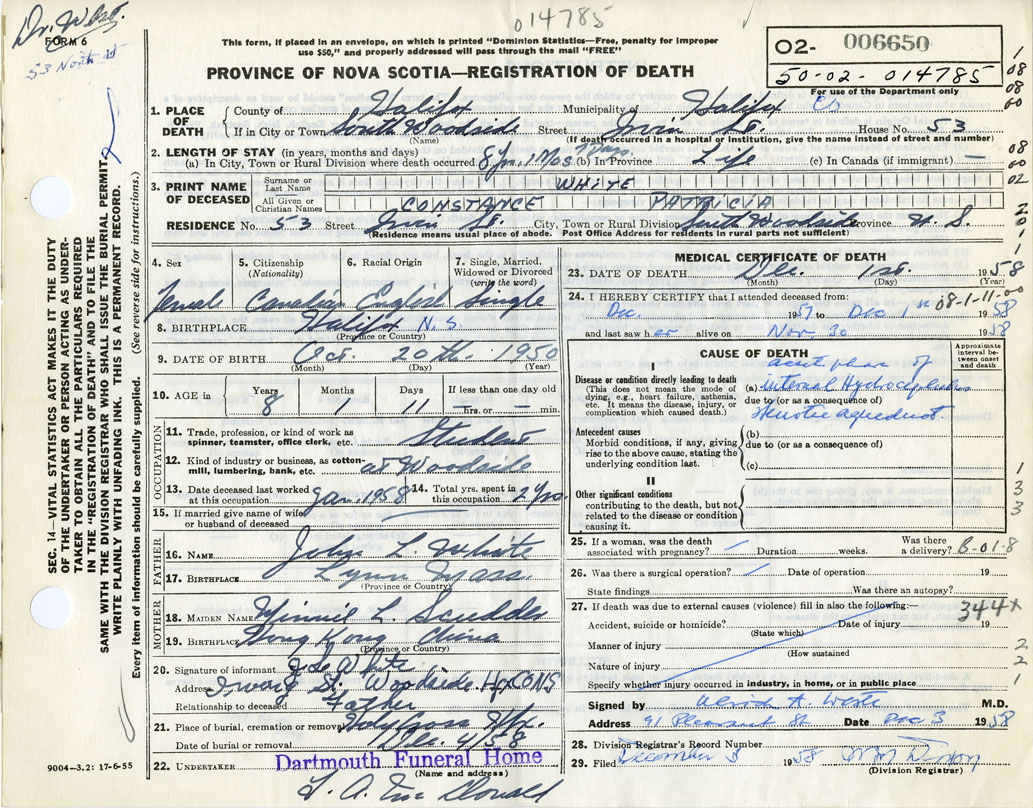 Dr. West.
014785
FORM 6
53 North St
This form, if placed in an envelope, on which is printed "Dominion Statistics—Free, penalty for improper
use $50," and properly addressed will pass through the mail "FREE"
PROVINCE OF NOVA SCOTIA—REGISTRATION OF DEATH
O2- 006650
50-02-014785
For use of the Department only
1. PLACE OF DEATH
County of Halifax Municipality of Halifax
If in City or Town South Woodside Street Irvin St. House No. 53
(Name) (If death occurred in a hospital or institution, give the name instead of street and number)
2. LENGTH OF STAY (in years, months and days)
(a) In City, Town or Rural Division where death occurred 8 yrs. 1 Mos (b) In Province Life (c) In Canada (if immigrant) —
3. PRINT NAME OF DECEASED
Surname or Last Name WHITE
All Given or Christian Names CONSTANCE PATRICIA
RESIDENCE No. 53 Street Irvin St. City, Town or Rural Division South Woodside Province N. S.
(Residence means usual place of abode. Post Office Address for residents in rural parts not sufficient)
4. Sex 5. Citizenship (Nationality) 6. Racial Origin 7. Single, Married, Widowed or Divorced (write the word)
Female Canadian English Single
8. BIRTHPLACE Halifax N.S.
(Province or Country)
9. DATE OF BIRTH Oct. 20th. 1950
(Month) (Day) (Year)
10. AGE in Years 8 Months 1 Days 11 If less than one day old hrs. or min.
OCCUPATION
11. Trade, profession, or kind of work as spinner, teamster, office clerk, etc. Student
12. Kind of industry or business, as cotton-mill, lumbering, bank, etc. at Woodside
13. Date deceased last worked at this occupation Jan. 1958 14. Total yrs. spent in this occupation 2 yrs.
15. If married give name of wife or husband of deceased
FATHER
16. NAME John L. White
17. BIRTHPLACE Lynn Mass.
(Province or Country)
MOTHER
18. MAIDEN NAME Winnie L. Scudder
19. BIRTHPLACE Hong Kong China
(Province or Country)
20. Signature of informant J L White
Address Irving St. Woodside Hfx CO NS
Relationship to deceased Father
21. Place of burial, cremation or removal Holy Cross Hfx.
Date of burial or removal Dec. 4/58
22. UNDERTAKER Dartmouth Funeral Home
(Name and address)
9004—3.2: 17-6-55
MEDICAL CERTIFICATE OF DEATH
23. DATE OF DEATH Dec. 1st. 1958
(Month) (Day) (Year)
24. I HEREBY CERTIFY that I attended deceased from: 08-1-11-00
Dec. 1957 to Dec 1st 1958
and last saw her alive on Nov. 30 1958
CAUSE OF DEATH
Approximate interval between onset and death
I
Disease or condition directly leading to death
(This does not mean the mode of dying, e.g., heart failure, asthenia, etc. It means the disease, injury, or complication which caused death.)
acute phase of
(a) internal Hydrocephalus
due to (or as a consequence of)
Stenotic aqueduct
Antecedent causes
Morbid conditions, if any, giving rise to the above cause, stating the underlying condition last.
(b)
due to (or as a consequence of)
(c)
II
Other significant conditions
contributing to the death, but not related to the disease or condition causing it.
25. If a woman, was the death associated with pregnancy? Duration weeks. Was there a delivery? B-01-8
26. Was there a surgical operation? Date of operation 19
State findings Was there an autopsy?
27. If death was due to external causes (violence) fill in also the following:— 344x
Accident, suicide or homicide? Date of injury 19
(State which)
Manner of injury
(How sustained
Nature of injury
Specify whether injury occurred in industry, in home, or in public place
Signed by M.D.
Address 91 Pleasant St Date Dec 3 1958
28. Division Registrar's Record Number
29. Filed December 3 1958
(Division Registrar)
SEC. 14—VITAL STATISTICS ACT MAKES IT THE DUTY
OF THE UNDERTAKER OR PERSON ACTING AS UNDER-
TAKER TO OBTAIN ALL THE PARTICULARS REQUIRED
IN THE "REGISTRATION OF DEATH" AND TO FILE THE
SAME WITH THE DIVISION REGISTRAR WHO SHALL ISSUE THE BURIAL PERMIT.
WRITE PLAINLY WITH UNFADING INK. THIS IS A PERMANENT RECORD.
Every item of information should be carefully supplied. (See reverse side for instructions.)